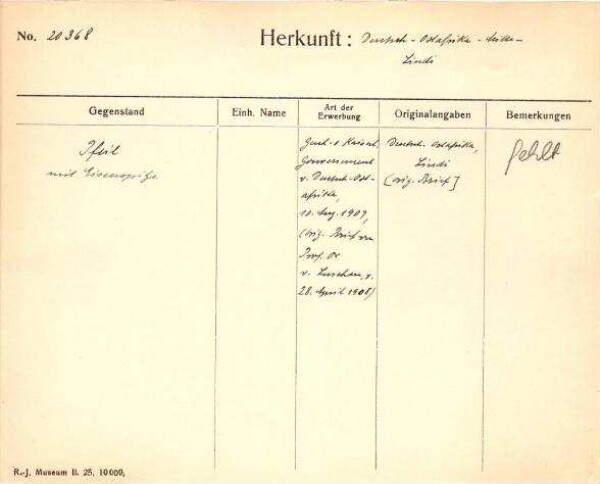 No. 20368
Herkunft: Deutsch-Ostafrika-
Lindi
Gegenstand
Einh. Name
Art der Erwerbung
Originalangaben
Bemerkungen
Pfeil
mit Eisenspitze
Gesch. v. Kaiserl.
Gouvernement
v. Deutsch-Ost-
afrika,
10. Aug. 1907,
(orig. Brief von
Prof. Dr
v. Luschan, v.
28. April 1908)
Deutsch-Ostafrika,
Lindi
(orig. Brief]
fehlt
R.-J. Museum II. 25. 10000.